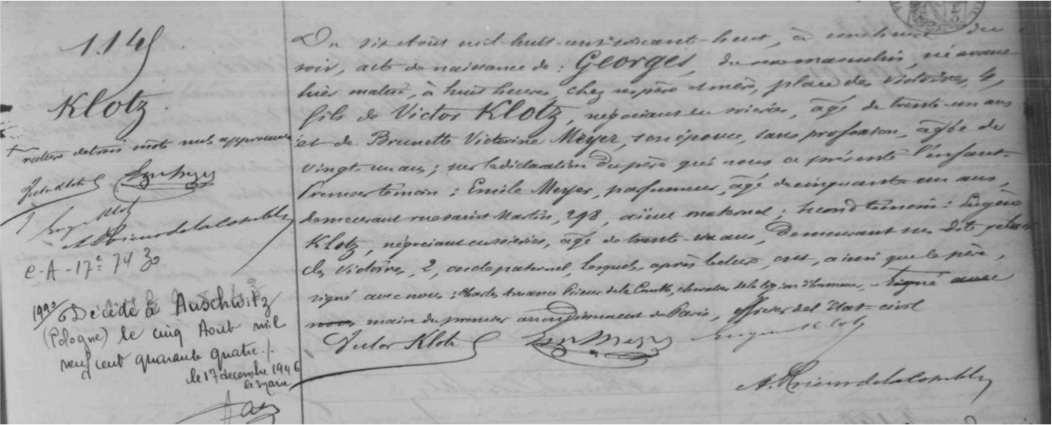 1145
Klotz
rature de trois mots nuls approuvée
C.A - 17e 74 30
Décédé à Auschwitz
(Pologne) le cinq Août mil
neuf cent quarante quatre /.
le 17 décembre 1946
le maire
Du six Août mil huit cent soixante huit, à du
soir, acte de naissance de : Georges, du sexe masculin, né avant
hier matin, à huit heures, chez ses père et mère, place des Victoires,
fils de Victor Klotz, négociant en soieries, âgé de trente un ans
et de Brunette Victorine Meyer, son épouse, sans profession, âgée de
vingt un ans ; sur la déclaration du père qui nous a présenté l'enfant.
Premier témoin : Emile Meyer, parfumeur, âgé de cinquante un ans,
demeurant rue saint Martin, 298, aïeul maternel ; second témoin : Eugène
Klotz, négociant en soieries, âgé de trente ans, demeurant
des Victoires, 2, oncle paternel, lesquels, après lecture, ont, ainsi que le père,
signé avec nous : Charles Prieur de la Comble, chevalier de la Légion d'honneur, signé avec
nous maire du premier arrondissement de Paris, officier de l'Etat-civil
Victor Klotz
Eugène Klotz
A. Prieur de la Comble